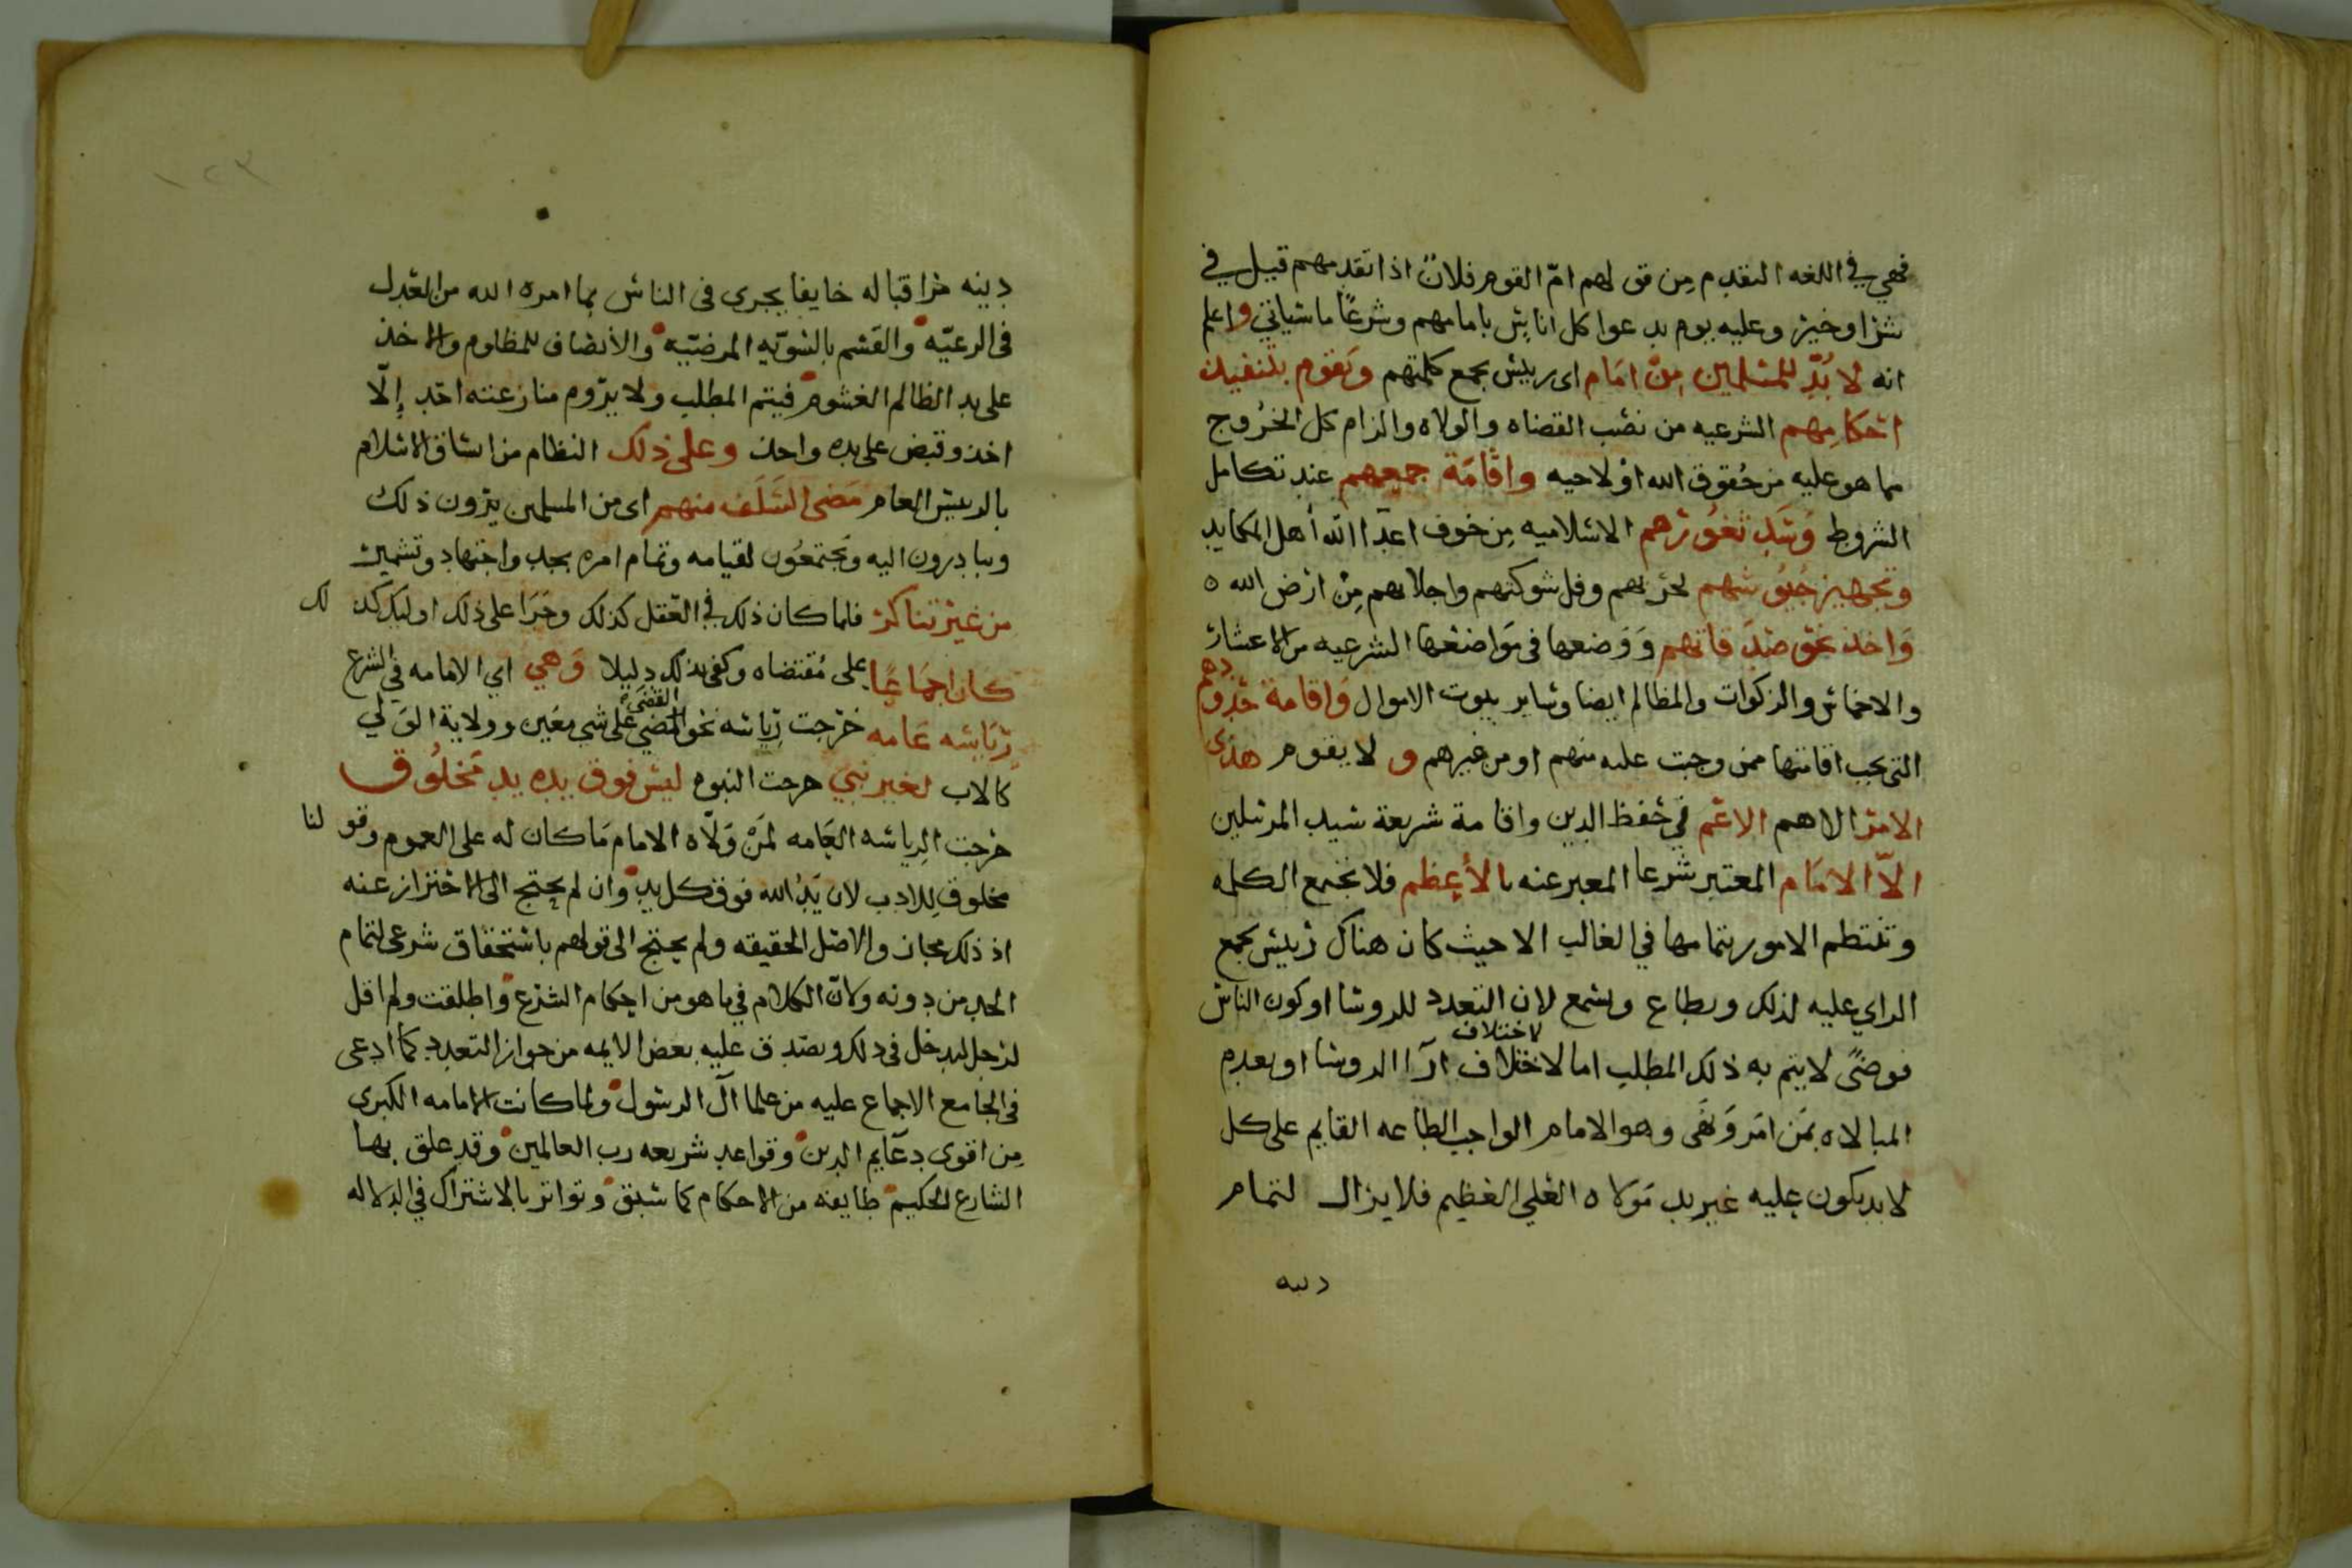 فهي في اللغه التقدم مِن قولهم امّ القوم فلانٌ اذا تقدمهم قيل في
شر او خير وعليه يوم يدعوا كل اناسٍ بامامهم وشرعًا ما سياتي واعلم
انه لا بُدّ للمسلمين مِنْ امَام اى رييس يجمع كلمتهم ويَقوم بتنفيذ
احكامِهم الشرعيه من نصب القضاه والولاه والزام كل الخرُوج
مما هو عليه من حُقوق الله اوْ لاحيه واقَامَة جمعهم عند تكامل
الشروط وَسَدِّ ثغوُرهم الاسلاميه مِن خوف اعدآ الله أهل المكايد
وتجهيز جُيُوشهم لحربهم وفل شوكتهم واجلابهم مِنْ ارض الله ه
وَاخذ نحو صَدَقاتهم وَوَضعها في مَوَاضعها الشرعيه من الاعشار
والاخماس والزكوات والمظالم ايضا وساير بيوت الاموال وَاقامة حُدُودهم
التى يجب اقامتها ممن وجبت عليه منهم او من غيرهم و لا يقوم هذى
الامرَ الاهم الاعَم في حفظ الدين واقامة شريعة سيد المرسلين
الاّ الامَام المعتبر شرعا المعبر عنه بالأعظم فلا تجتمع الكلمه
وتنتظم الامور بتمامها في الغالب الا حيث كان هناك رييس يجمع
الراي عليه لذلك ويطاع ويسمع لان التعدد للروسا او كون الناس
فوضًى لا يتم به ذلك المطلب اما لاختلاف ارآ الروسا او بعدم
لاختلاف
المبالاه بمَن امَر وَنَهَى وهو الامام الواجب الطاعه القايم على كل
لا يد يكون عليه غير يد مَولاه العَلي العَظيم فلا يزال لتمام
دينه
١٢٣
دينه مرا قباله خايفا يجرى فى الناس بما امره الله من العَدل
فى الرعيّه والقَسْم بالسَّويّهِ المرضيّه والأنصاف للمظلوم والاخذ
على يد الظالم الغشوم فيتم المطلب ولا يرّوم منازعته احَد إلّا
اخذ وقبض على يده واحذ وعلى ذلك النظام من اتساق الاسلام
بالرييس العام مَضى السَّلَف منهم اى من المسلمين يرَون ذلك
ويبادِرون اليه ويَجتمعُون لقيامه وتمَام امره بجد واجتهاد وتشمير
من غير تناكر فلما كان ذلك في العَقل كذلك وجَرَا على ذلك اوليك كذلك
كان اجمَاعًا على مُقتضاه وكفى بذلك دليلا وَهي اي الامامه في الشرع
رِيَاسَه عَامه خَرجت رِيَاسه نحو المضي على شي معَين وولاية الوَلي
القَضَى
كالاب لغير نبي خرجت النبوه ليسَ فوق يده يد مَخلُوق
خرجت الرياسه العَامه لمَنْ وَلّاه الامام مَا كان له على العموم وقولنا
مخلوق لِلادب لان يَدُ الله فوق كل يد وان لم يحتج الى الاختراز عنه
اذ ذلك مجاز والاصْل الحقيقه ولم يحتج الى قولهم باستحقاق شرعى لتمام
الحد من دونه ولانّ الكلام في ما هو من احكام الشرع واطلقت ولم اقل
لرجل ليدخل فى ذلك ويصْدق عليه بعض الايمه من جواز التعدد كما ادعى
فى الجامع الاجماع عليه من علما آل الرسول ولما كانت الامامه الكبرى
مِن اقوى دعَايم الدين وقواعد شريعه رب العالمين وقد علق بها
الشارع الحكيم طايفه من الاحكام كما سبق وتواتر بالاشتراك في الدلاله